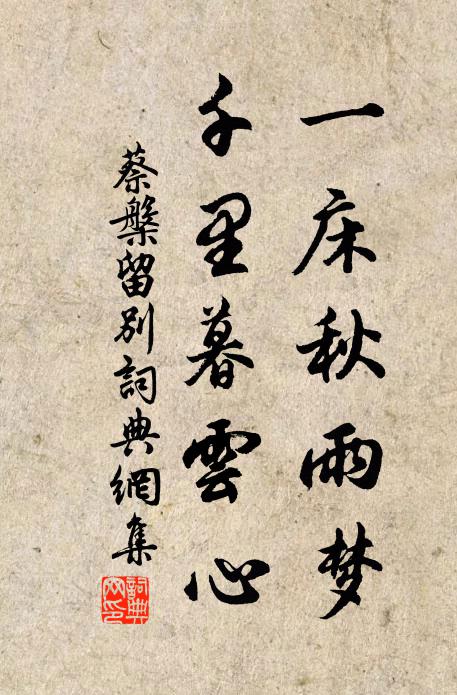 一床秋雨梦
千里暮雲心
蔡槃留别詞典網集
詞典网印